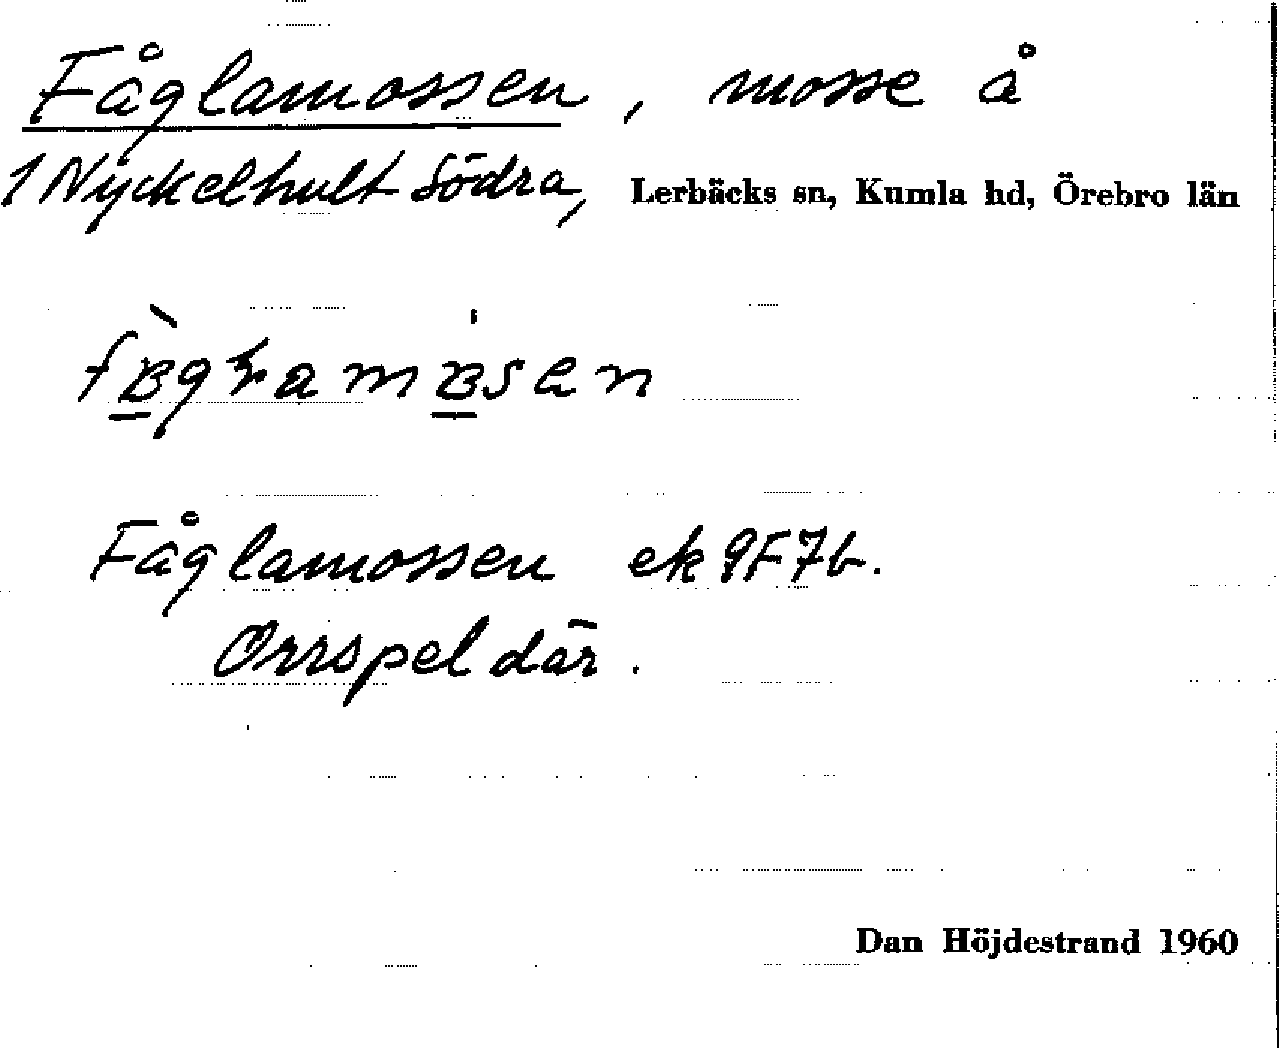 Fåglamossen, mosse å
1 Nyckelhult Södra, Lerbäcks sn, Kumla hd, Örebro län
Fåglamossen ek 9F7b.
Orrspel där.
Dan Höjdestrand 1960